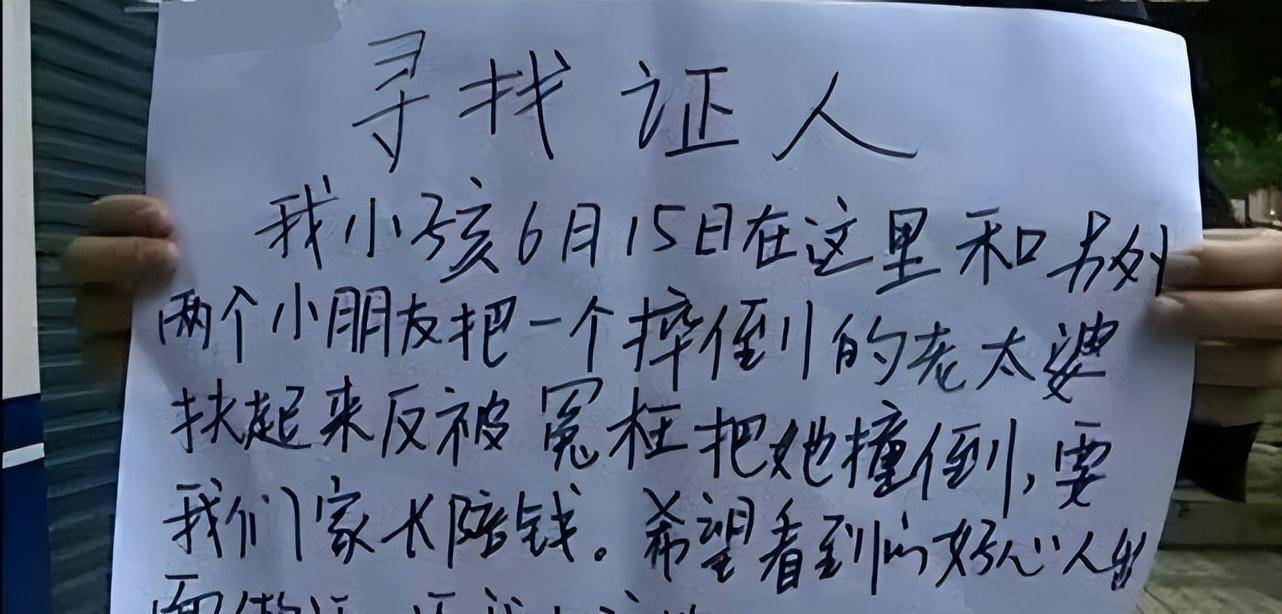 寻找证人
我小孩6月15日在这里和另外
两个小朋友把一个摔倒的老太婆
扶起来反被冤枉把她撞倒,要
我们家长陪钱。希望看到的好心人出
面做证